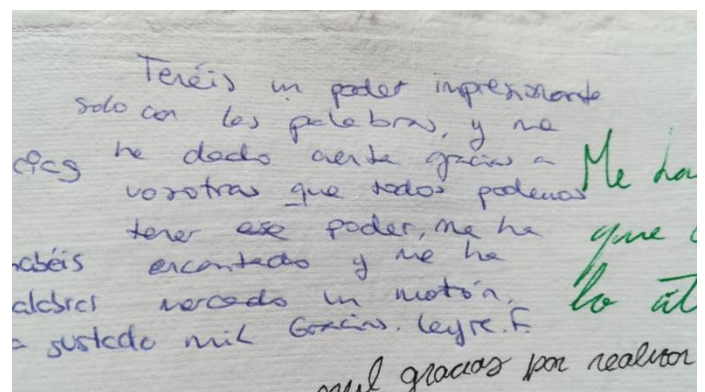 Tenéis un poder impresionante
solo con las palabras, y me
he dado cuenta gracias a
vosotras que todos podemos
tener ese poder, me ha
encantado y me ha
marcado un montón.
mil Gracias. Leyre. F.
Me ha
que
lo
mil gracias por realizar